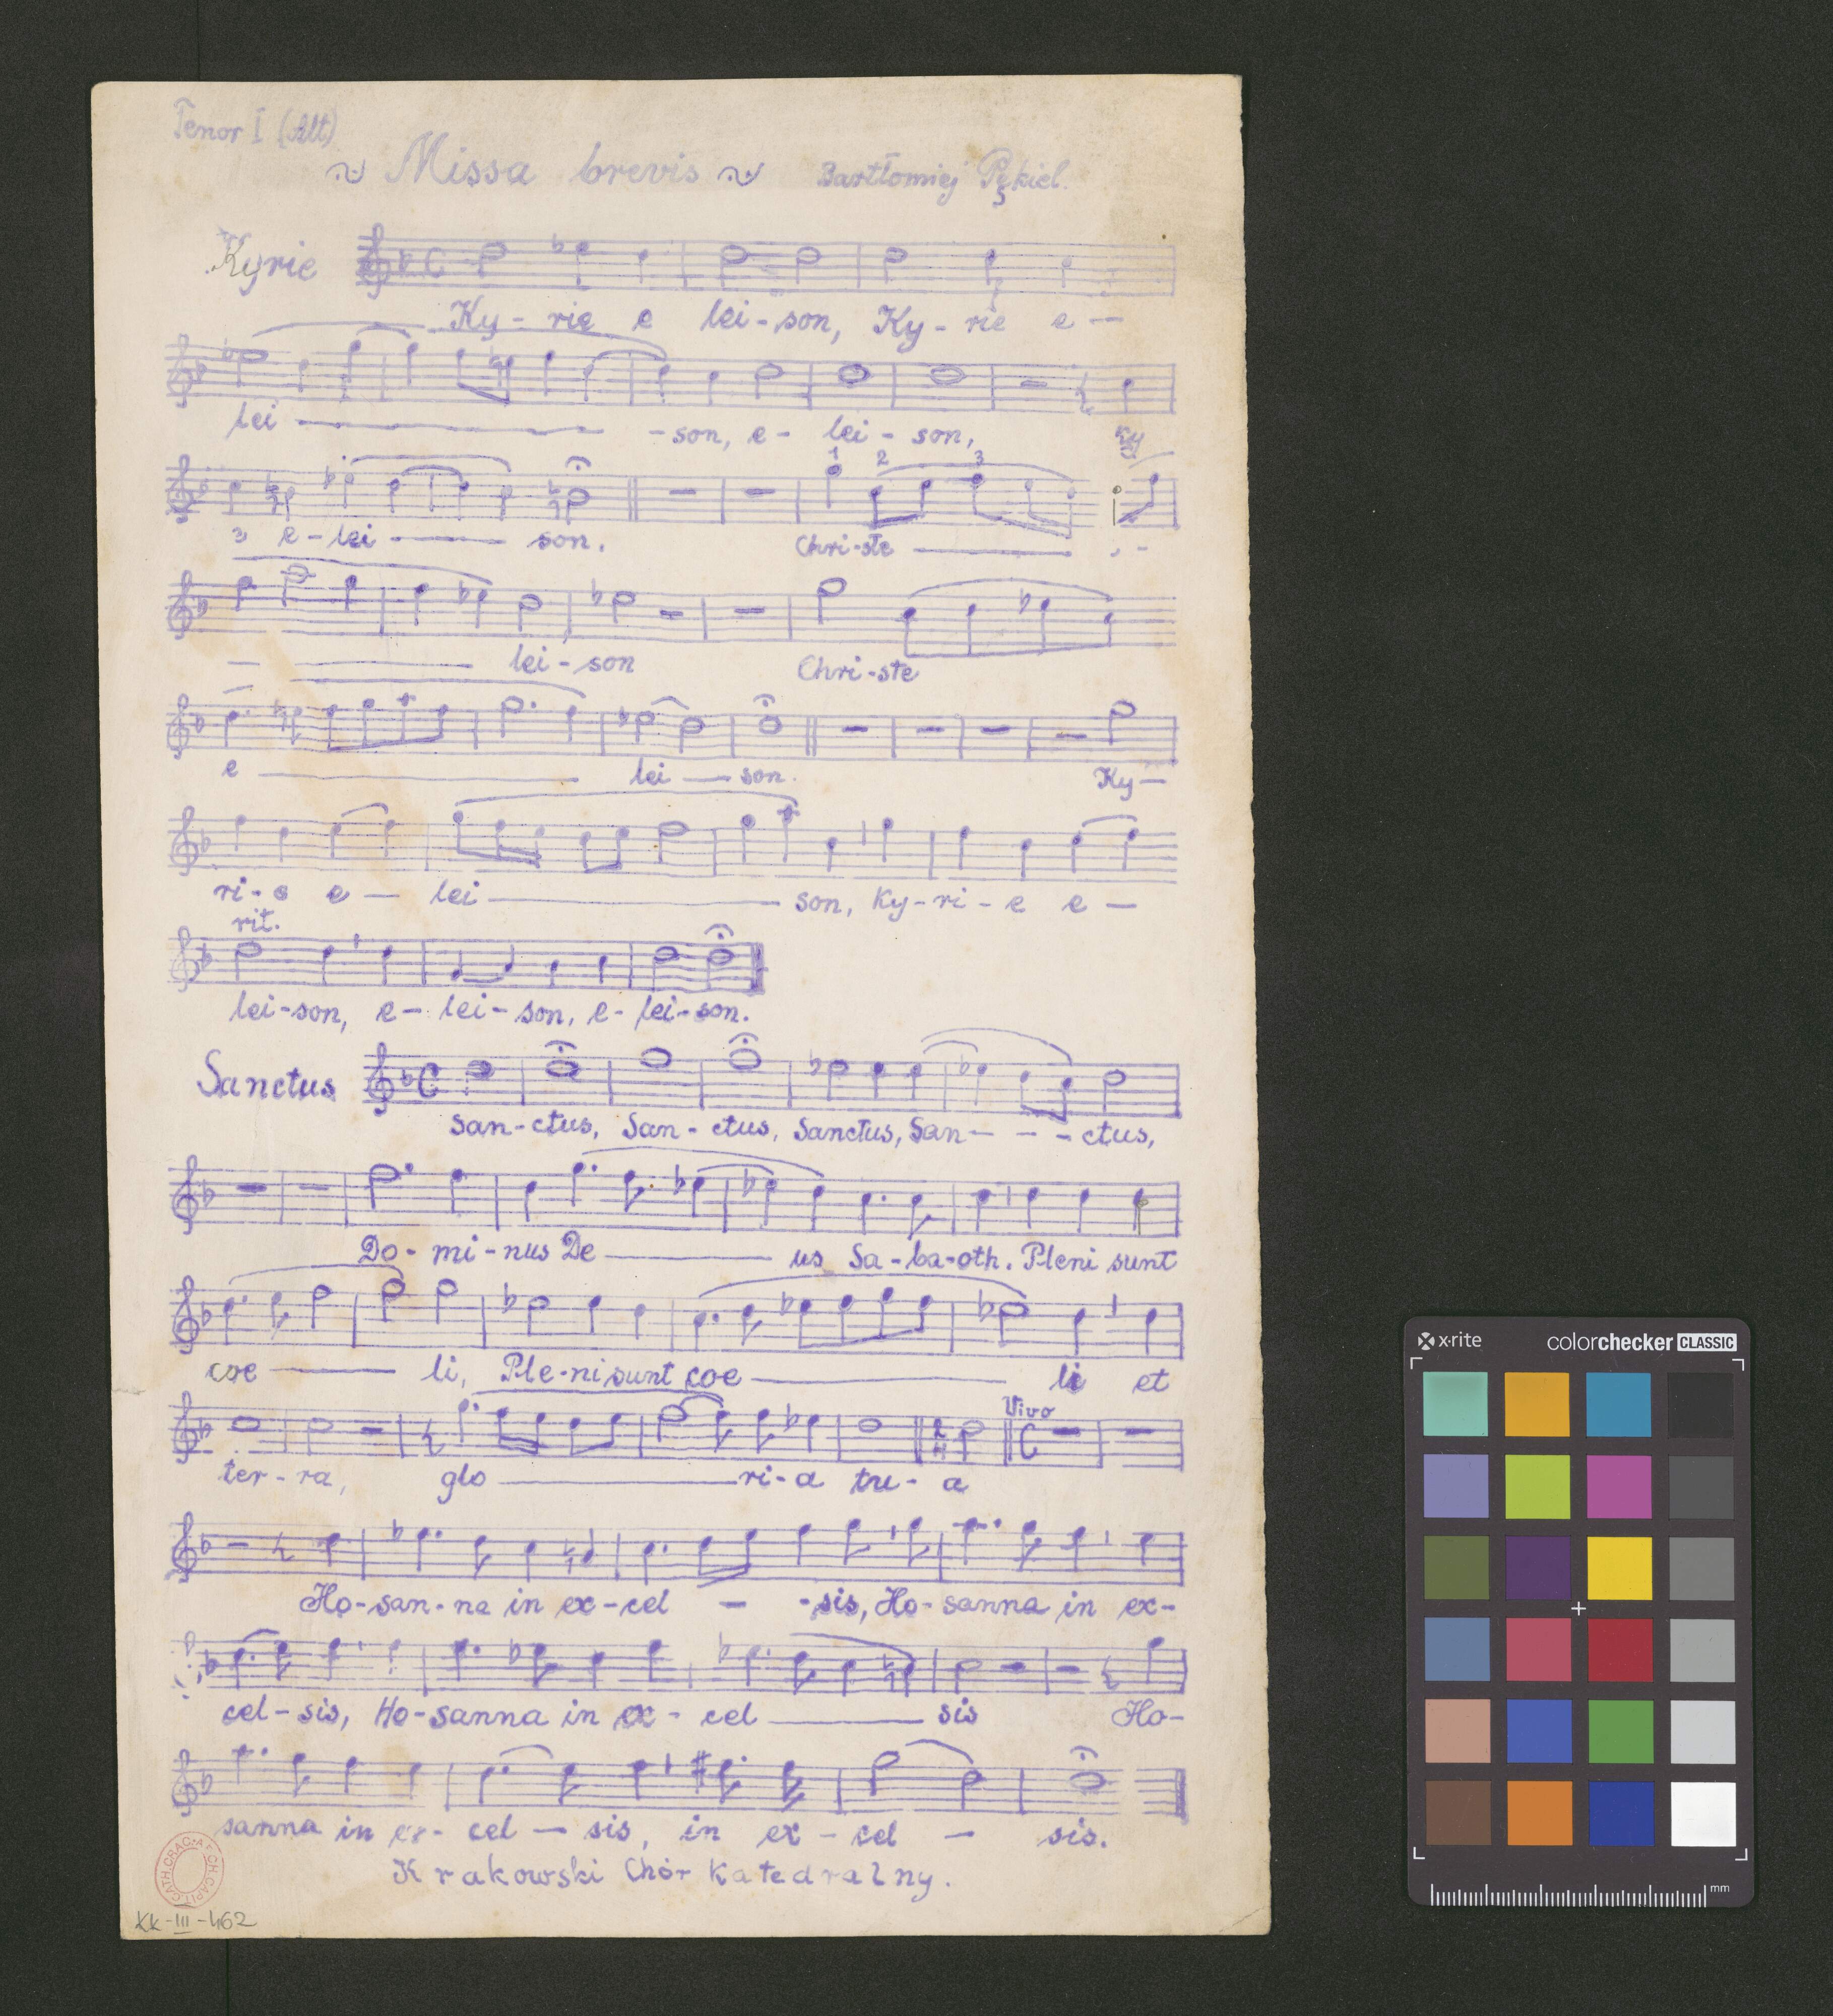 Tenor I (Alt)
~ Missa brevis ~ Bartłomiej Pękiel.
Kyrie
Ky - rie e lei - son, Ky - rie e —
lei — - son, e - lei - son, Ky
1 2 3
3 e - lei — son. Chri - ste —
— lei - son Chri - ste
e — lei — son. Ky —
ri - e e — lei — son, Ky - ri - e e —
rit.
lei - son, e - lei - son, e - lei - son.
Sanctus
San - ctus, San - ctus, Sanctus, San - - - ctus,
Do - mi - nus De — us Sa - ba - oth. Pleni sunt
coe — li, Ple - ni sunt coe — li et
Vivo
ter - ra, glo — ri - a tu - a
Ho - san - na in ex - cel - - sis, Ho - sanna in ex -
cel - sis, Ho - sanna in ex - cel — sis Ho -
sanna in ex - cel — sis, in ex - cel — sis.
Krakowski Chór Katedralny.
KK - III - 462
x·rite colorchecker CLASSIC
mm